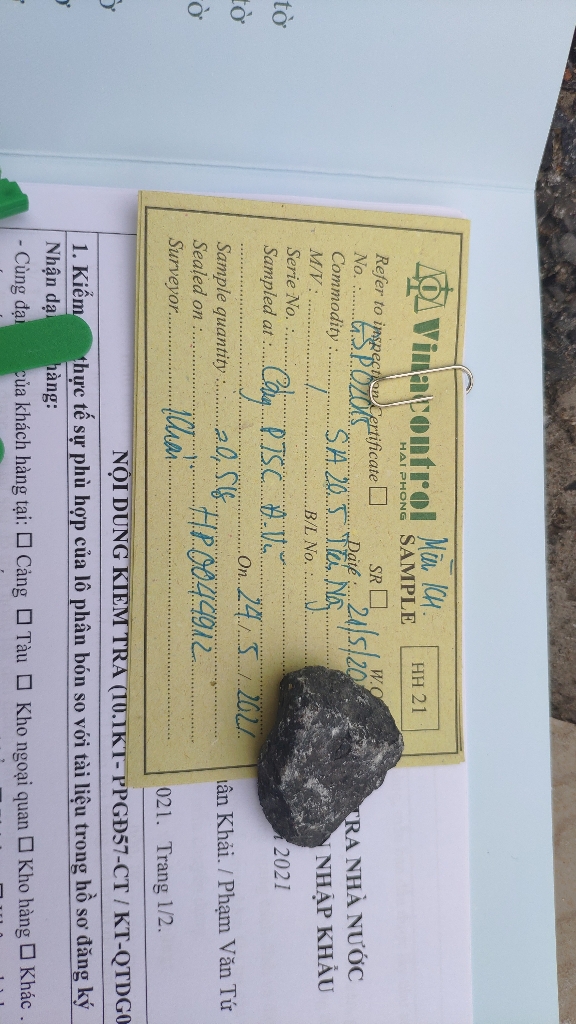 Vinacontrol
HAI PHONG
SAMPLE
Mẫu KH.
HH 21
Refer to inspection Certificate □ SR □ W.O
No. : Date : 21/5/20
Commodity : S.A 20.5
M/V : / B/L No. :
Serie No. :
Sampled at : Cảng PTSC Đ.Vũ
On 24 / 5 / 2021.
Sample quantity : 20,5
Sealed on : HP0044912
Surveyor Khải
TRA NHÀ NƯỚC
NHẬP KHẨU
2021
Khải. / Phạm Văn Tứ
021. Trang 1/2.
NỘI DUNG KIỂM TRA (10.1KT- PPGĐ57-CT / KT-QTDG0
1. Kiểm thực tế sự phù hợp của lô phân bón so với tài liệu trong hồ sơ đăng ký
Nhận dạ hàng:
- Cùng đại của khách hàng tại: □ Cảng □ Tàu □ Kho ngoại quan □ Kho hàng □ Khác .
tờ
tờ